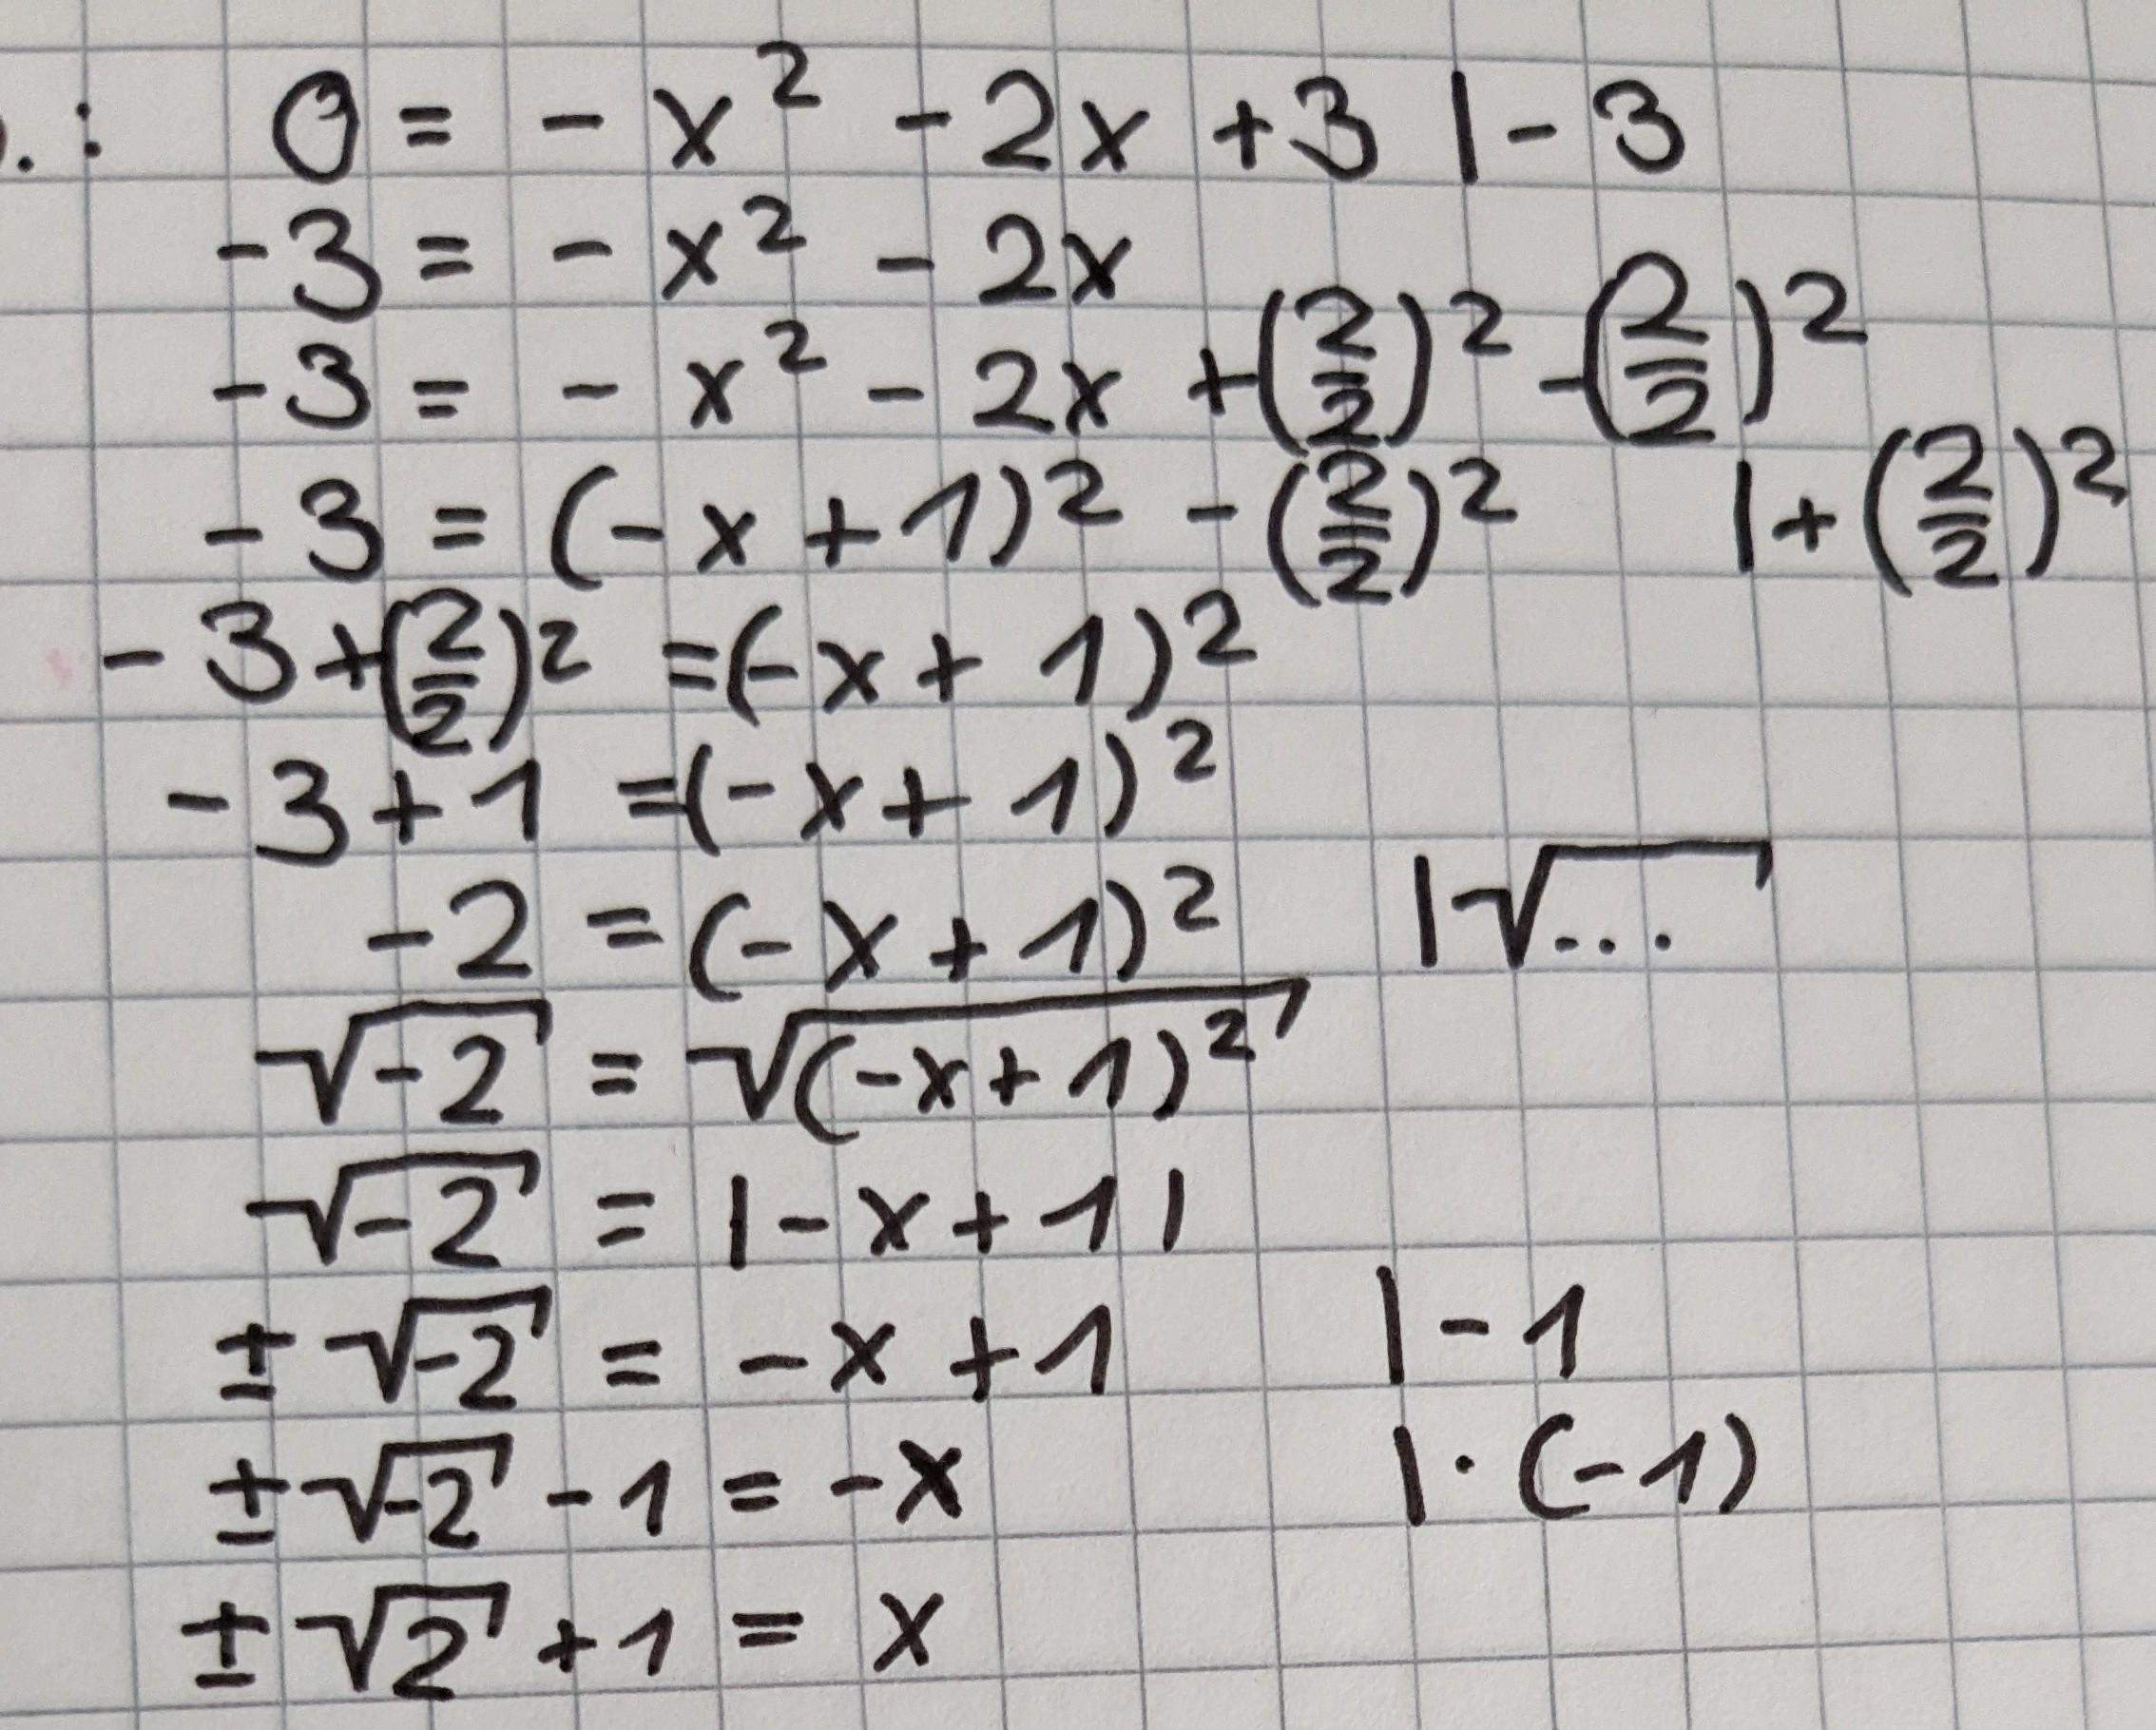 .: 0 = - x² - 2x + 3 | - 3
-3 = - x² - 2x
-3 = - x² - 2x + (2/2)² - (2/2)²
-3 = (-x + 1)² - (2/2)² | + (2/2)²
-3 + (2/2)² = (-x + 1)²
-3 + 1 = (-x + 1)²
-2 = (-x + 1)² | √...
√-2 = √(-x + 1)²
√-2 = |-x + 1|
± √-2 = -x + 1 | - 1
± √-2 - 1 = -x | · (-1)
± √2 + 1 = x